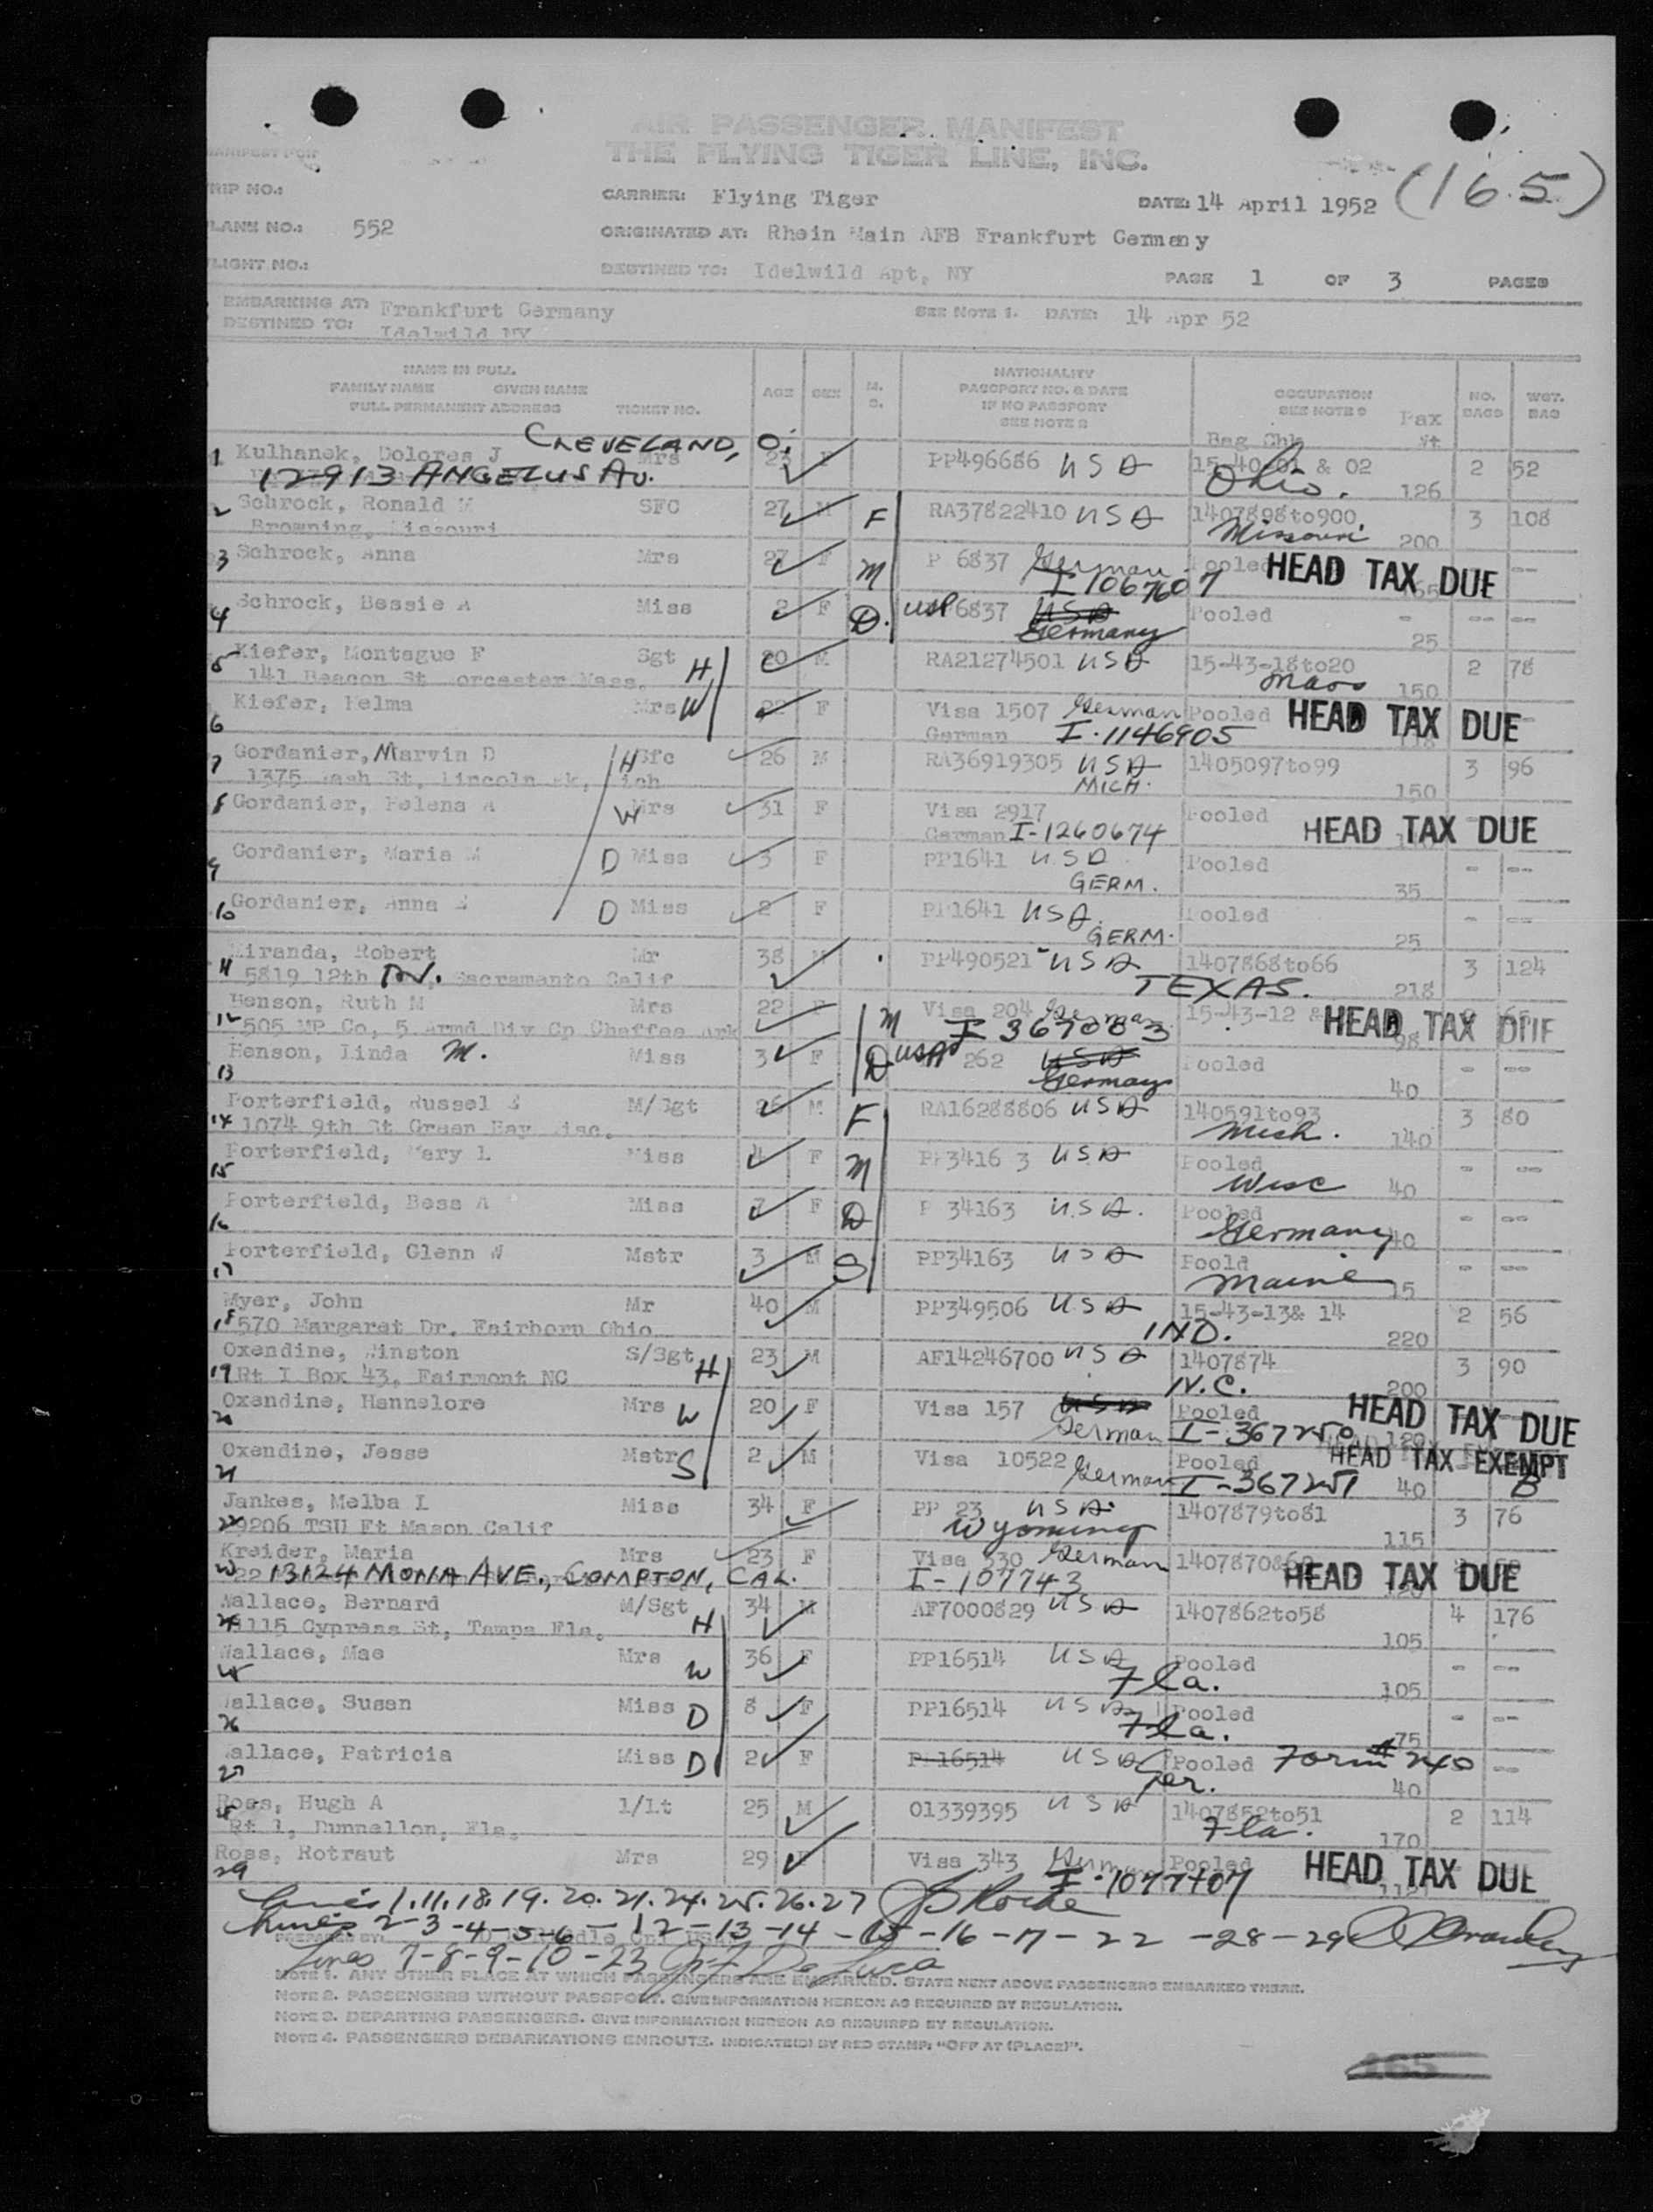 AIR PASSENGER MANIFEST
THE FLYING TIGER LINE, INC.
(165)
RIP NO.:
CARRIER: Flying Tiger
DATE: 14 April 1952
LANE NO.: 552
ORIGINATED AT: Rhein Main AFB Frankfurt Germany
LIGHT NO.:
DESTINED TO: Idelwild Apt, NY
PAGE 1 OF 3 PAGES
EMBARKING AT: Frankfurt Germany
SEE NOTE 1. DATE: 14 Apr 52
DESTINED TO: Idelwild NY
NAME IN FULL
FAMILY NAME GIVEN NAME
FULL PERMANENT ADDRESS TICKET NO.
AGE SEX M. S.
NATIONALITY
PASSPORT NO. & DATE
IF NO PASSPORT
SEE NOTE 2
OCCUPATION
SEE NOTE 3 Pax Wt
Bag Chk
NO. BAGS WGT. BAG
CLEVELAND, O.
1 Kulhanek, Dolores J Mrs 23 PP496686 USA 15-40-01 & 02 2 52
12913 ANGELUS AV. Ohio. 126
2 Schrock, Ronald M SFC 27 M F RA37822410 USA 1407898to900 3 108
Browning, Missouri Missouri 200
3 Schrock, Anna Mrs 27 F M P 6837 German Pooled HEAD TAX DUE --
I 1067607
4 Schrock, Bessie A Miss 2 F D. USP 6837 USA Pooled - -- --
Germany 25
5 Kiefer, Montague F Sgt H 20 M RA21274501 USA 15-43-18to20 2 78
141 Beacon St orcester Mass. Mass 150
6 Kiefer, Helma Mrs W 22 F Visa 1507 German Pooled HEAD TAX DUE
German I-1146905
7 Gordanier, Marvin D H Sfc 26 M RA36919305 USA 1405097to99 3 96
1375 Cash St, Lincoln Pk, Mich MICH. 150
8 Gordanier, Helena A W Mrs 31 F Visa 2917 Pooled
German I-1260674 HEAD TAX DUE
9 Gordanier, Maria M D Miss 3 F PP1641 USA Pooled - --
GERM. 35
10 Gordanier, Anna E D Miss 2 F PP1641 USA. Pooled - --
GERM. 25
11 Miranda, Robert Mr 38 M PP490521 USA 1407868to66 3 124
5819 12th AV. Sacramento Calif TEXAS. 218
12 Henson, Ruth M Mrs 22 F M Visa 204 German 15-43-12 &
505 MP Co, 5 Armd Div Cp Chaffee Ark I 367083 HEAD TAX DUE 98
13 Henson, Linda M. Miss 3 F D USA 262 USA Pooled - --
Germany 40
14 Porterfield, Russel E M/Sgt 26 M F RA16288806 USA 140591to93 3 80
1074 9th St Green Bay Wisc. Mich. 140
15 Porterfield, Mary L Miss 4 F M PP3416 3 USA Pooled - --
Wisc 40
16 Porterfield, Bess A Miss 7 F D P 34163 USA. Pooled - --
Germany 40
17 Porterfield, Glenn W Mstr 3 M S PP34163 USA Poold - --
Maine
18 Myer, John Mr 40 M PP349506 USA 15-43-13& 14 2 56
570 Margaret Dr. Fairborn Ohio IND. 220
19 Oxendine, Winston S/Sgt H 23 M AF14246700 USA 1407874 3 90
Rt I Box 43, Fairmont NC N.C. 200
20 Oxendine, Hannelore Mrs W 20 F Visa 157 USA Pooled HEAD TAX DUE
German I-367250 120
21 Oxendine, Jesse Mstr S 2 M Visa 10522 German Pooled HEAD TAX EXEMPT
I-367251 40 B
22 Jankes, Melba L Miss 34 F PP 23 USA. 1407879to81 3 76
9206 TSU Ft Mason Calif Wyoming 115
23 Kreider, Maria Mrs 23 F Visa 330 German 1407870&69
13124 MONA AVE., COMPTON, CAL. I-107743 HEAD TAX DUE
24 Wallace, Bernard M/Sgt H 34 M AF7000829 USA 1407862to58 4 176
4115 Cypress St, Tampa Fla. 105
25 Wallace, Mae Mrs W 36 F PP16514 USA Pooled - --
Fla. 105
26 Wallace, Susan Miss D 8 F PP16514 USA Pooled - --
Fla. 75
27 Wallace, Patricia Miss D 2 F P 16514 USA Pooled Form # 240 --
Ger. 40
28 Ross, Hugh A 1/Lt 25 M 01339395 USA 1407852to51 2 114
Rt 1, Dunnellon, Fla. Fla. 170
29 Ross, Rotraut Mrs 29 Visa 343 German Pooled HEAD TAX DUE
I-1077707
Lines 1.11.18.19.20.21.24.25.26.27
Lines 2-3-4-5-6-12-13-14-15-16-17-22-28-29
PREPARED BY:
Lines 7-8-9-10-23
NOTE 1. ANY OTHER PLACE AT WHICH PASSENGERS ARE EMBARKED. STATE NEXT ABOVE PASSENGERS EMBARKED THERE.
NOTE 2. PASSENGERS WITHOUT PASSPORT. GIVE INFORMATION HEREON AS REQUIRED BY REGULATION.
NOTE 3. DEPARTING PASSENGERS. GIVE INFORMATION HEREON AS REQUIRED BY REGULATION.
NOTE 4. PASSENGERS DEBARKATIONS ENROUTE. INDICATE(D) BY RED STAMP: "OFF AT (PLACE)".
165